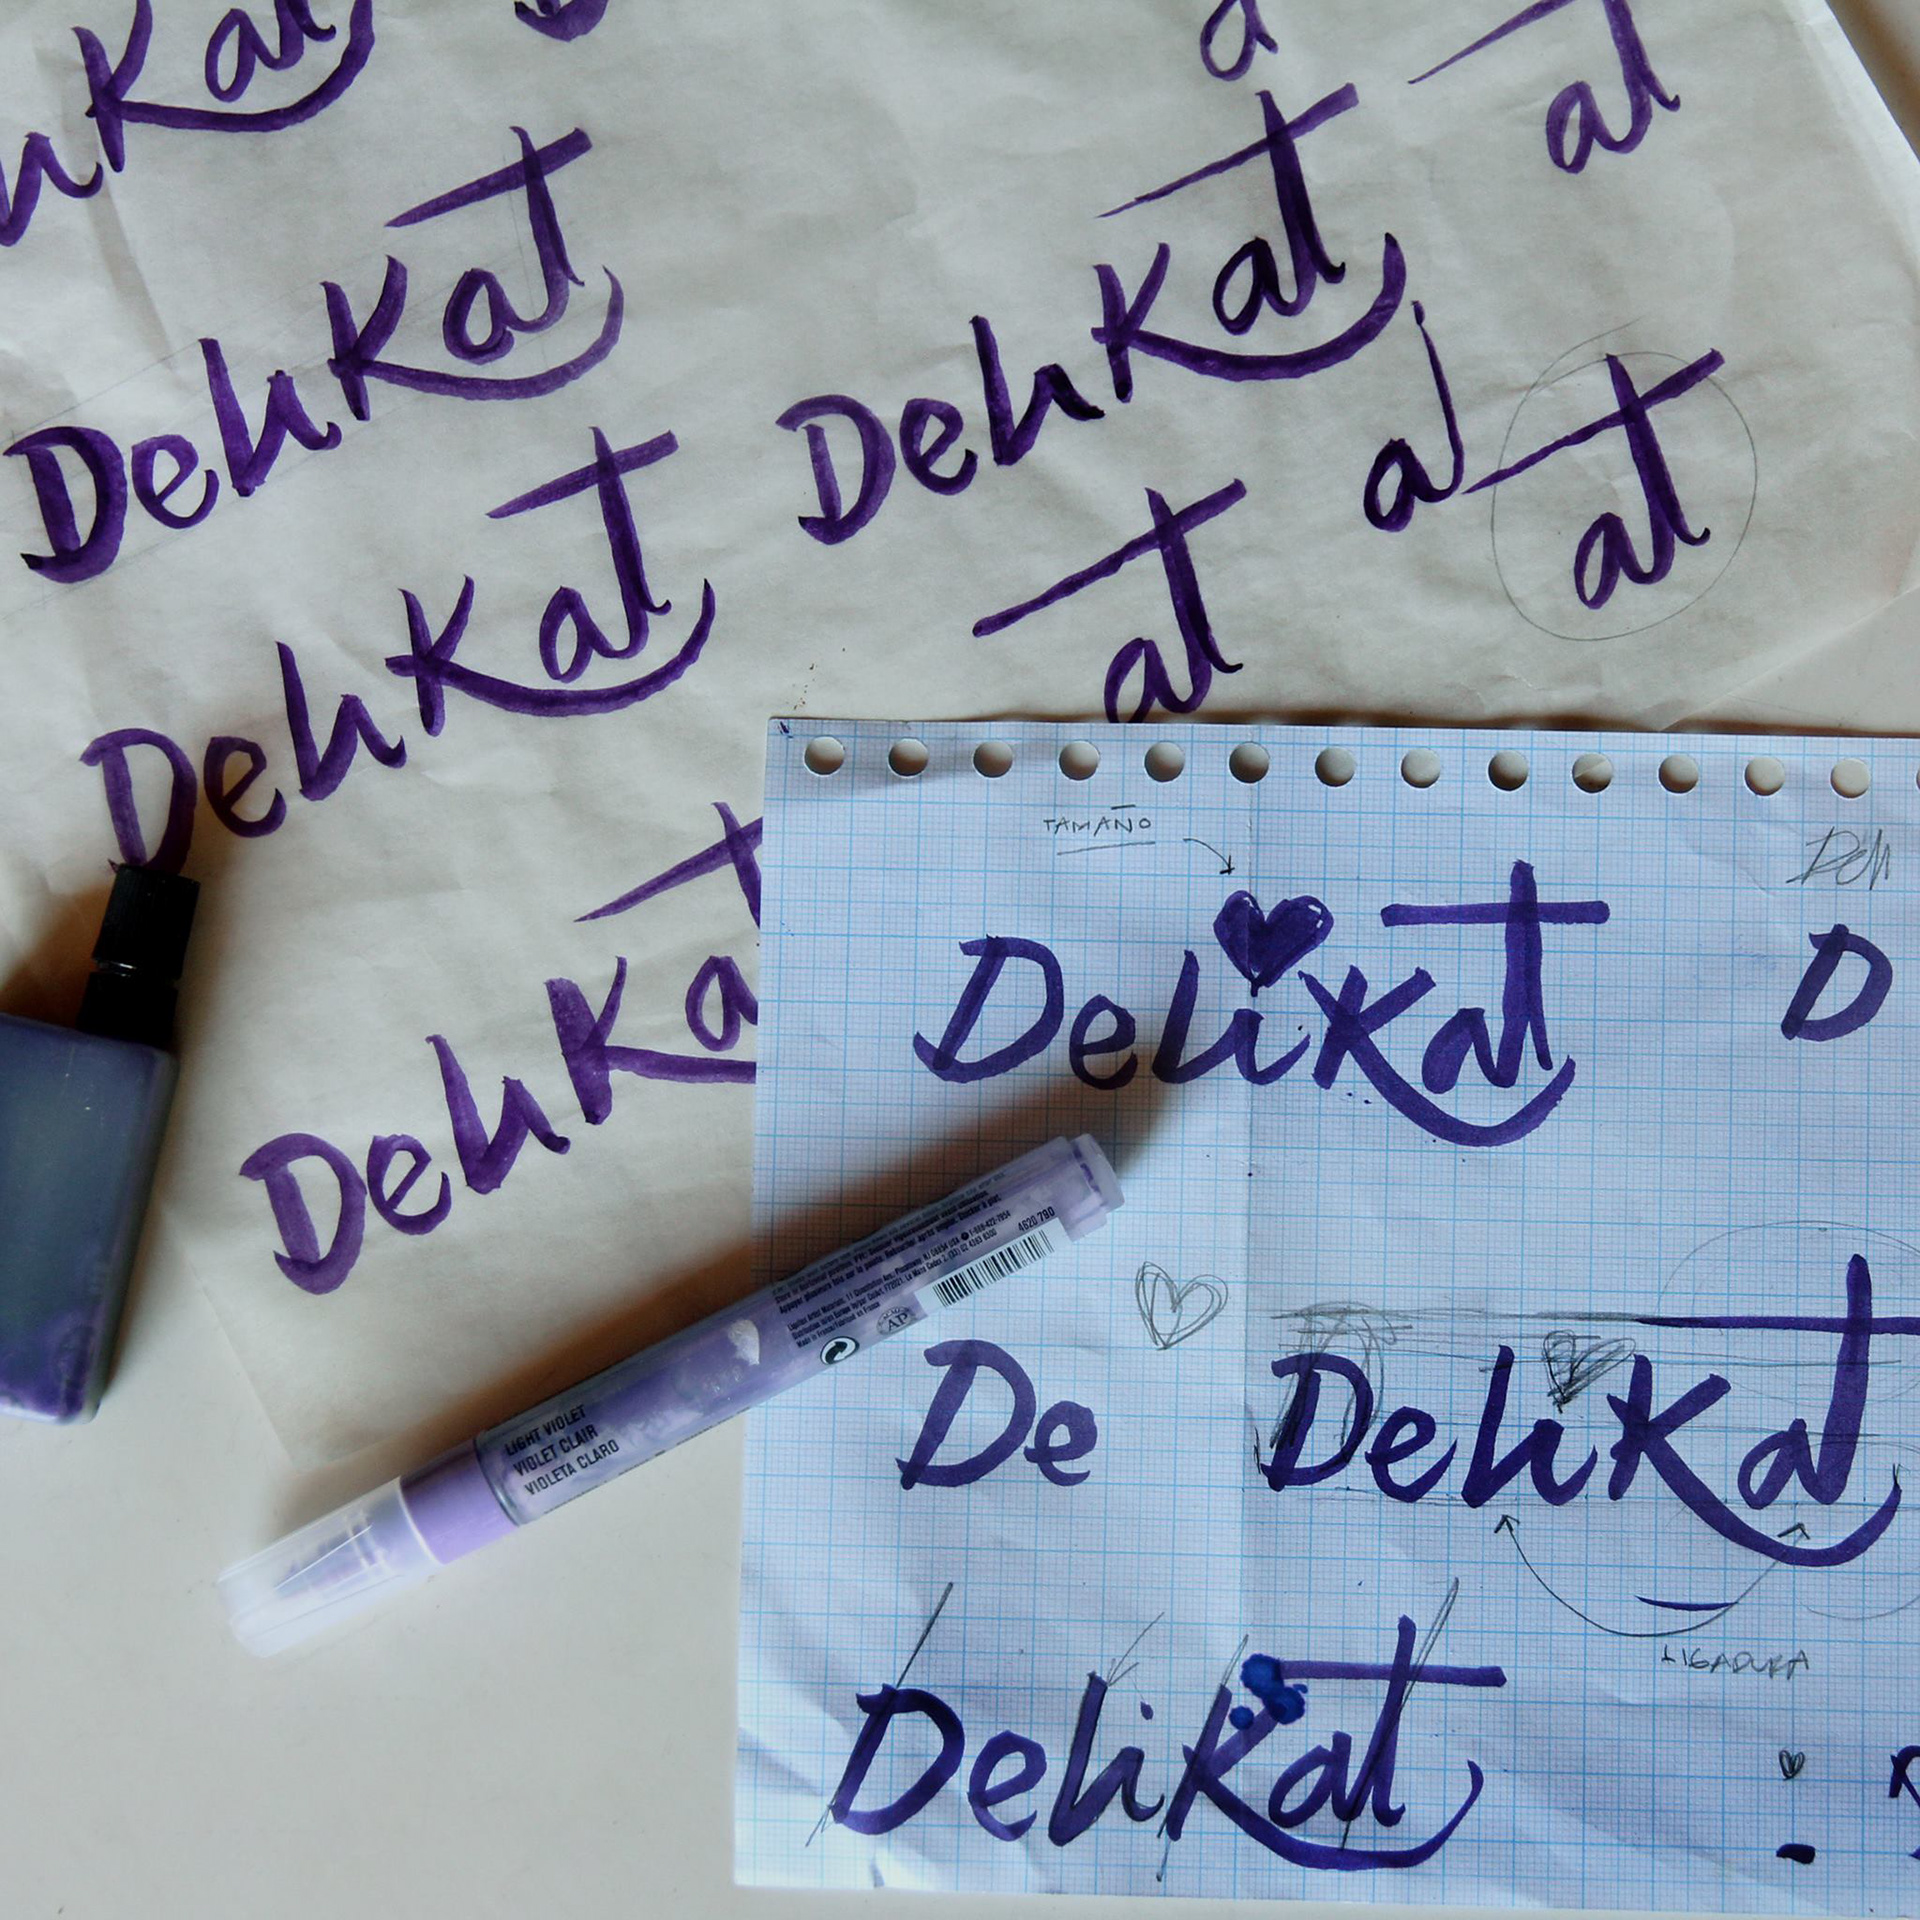 Kat
a
at
DeliKat
DeliKat
a
at
at
DeliKat
DeliKa
TAMAÑO
Deli
DeliKat
D
LIGHT VIOLET
VIOLET CLAIR
VIOLETA CLARO
4620 790
AP
De
DeliKat
LIGADURA
DeliKat